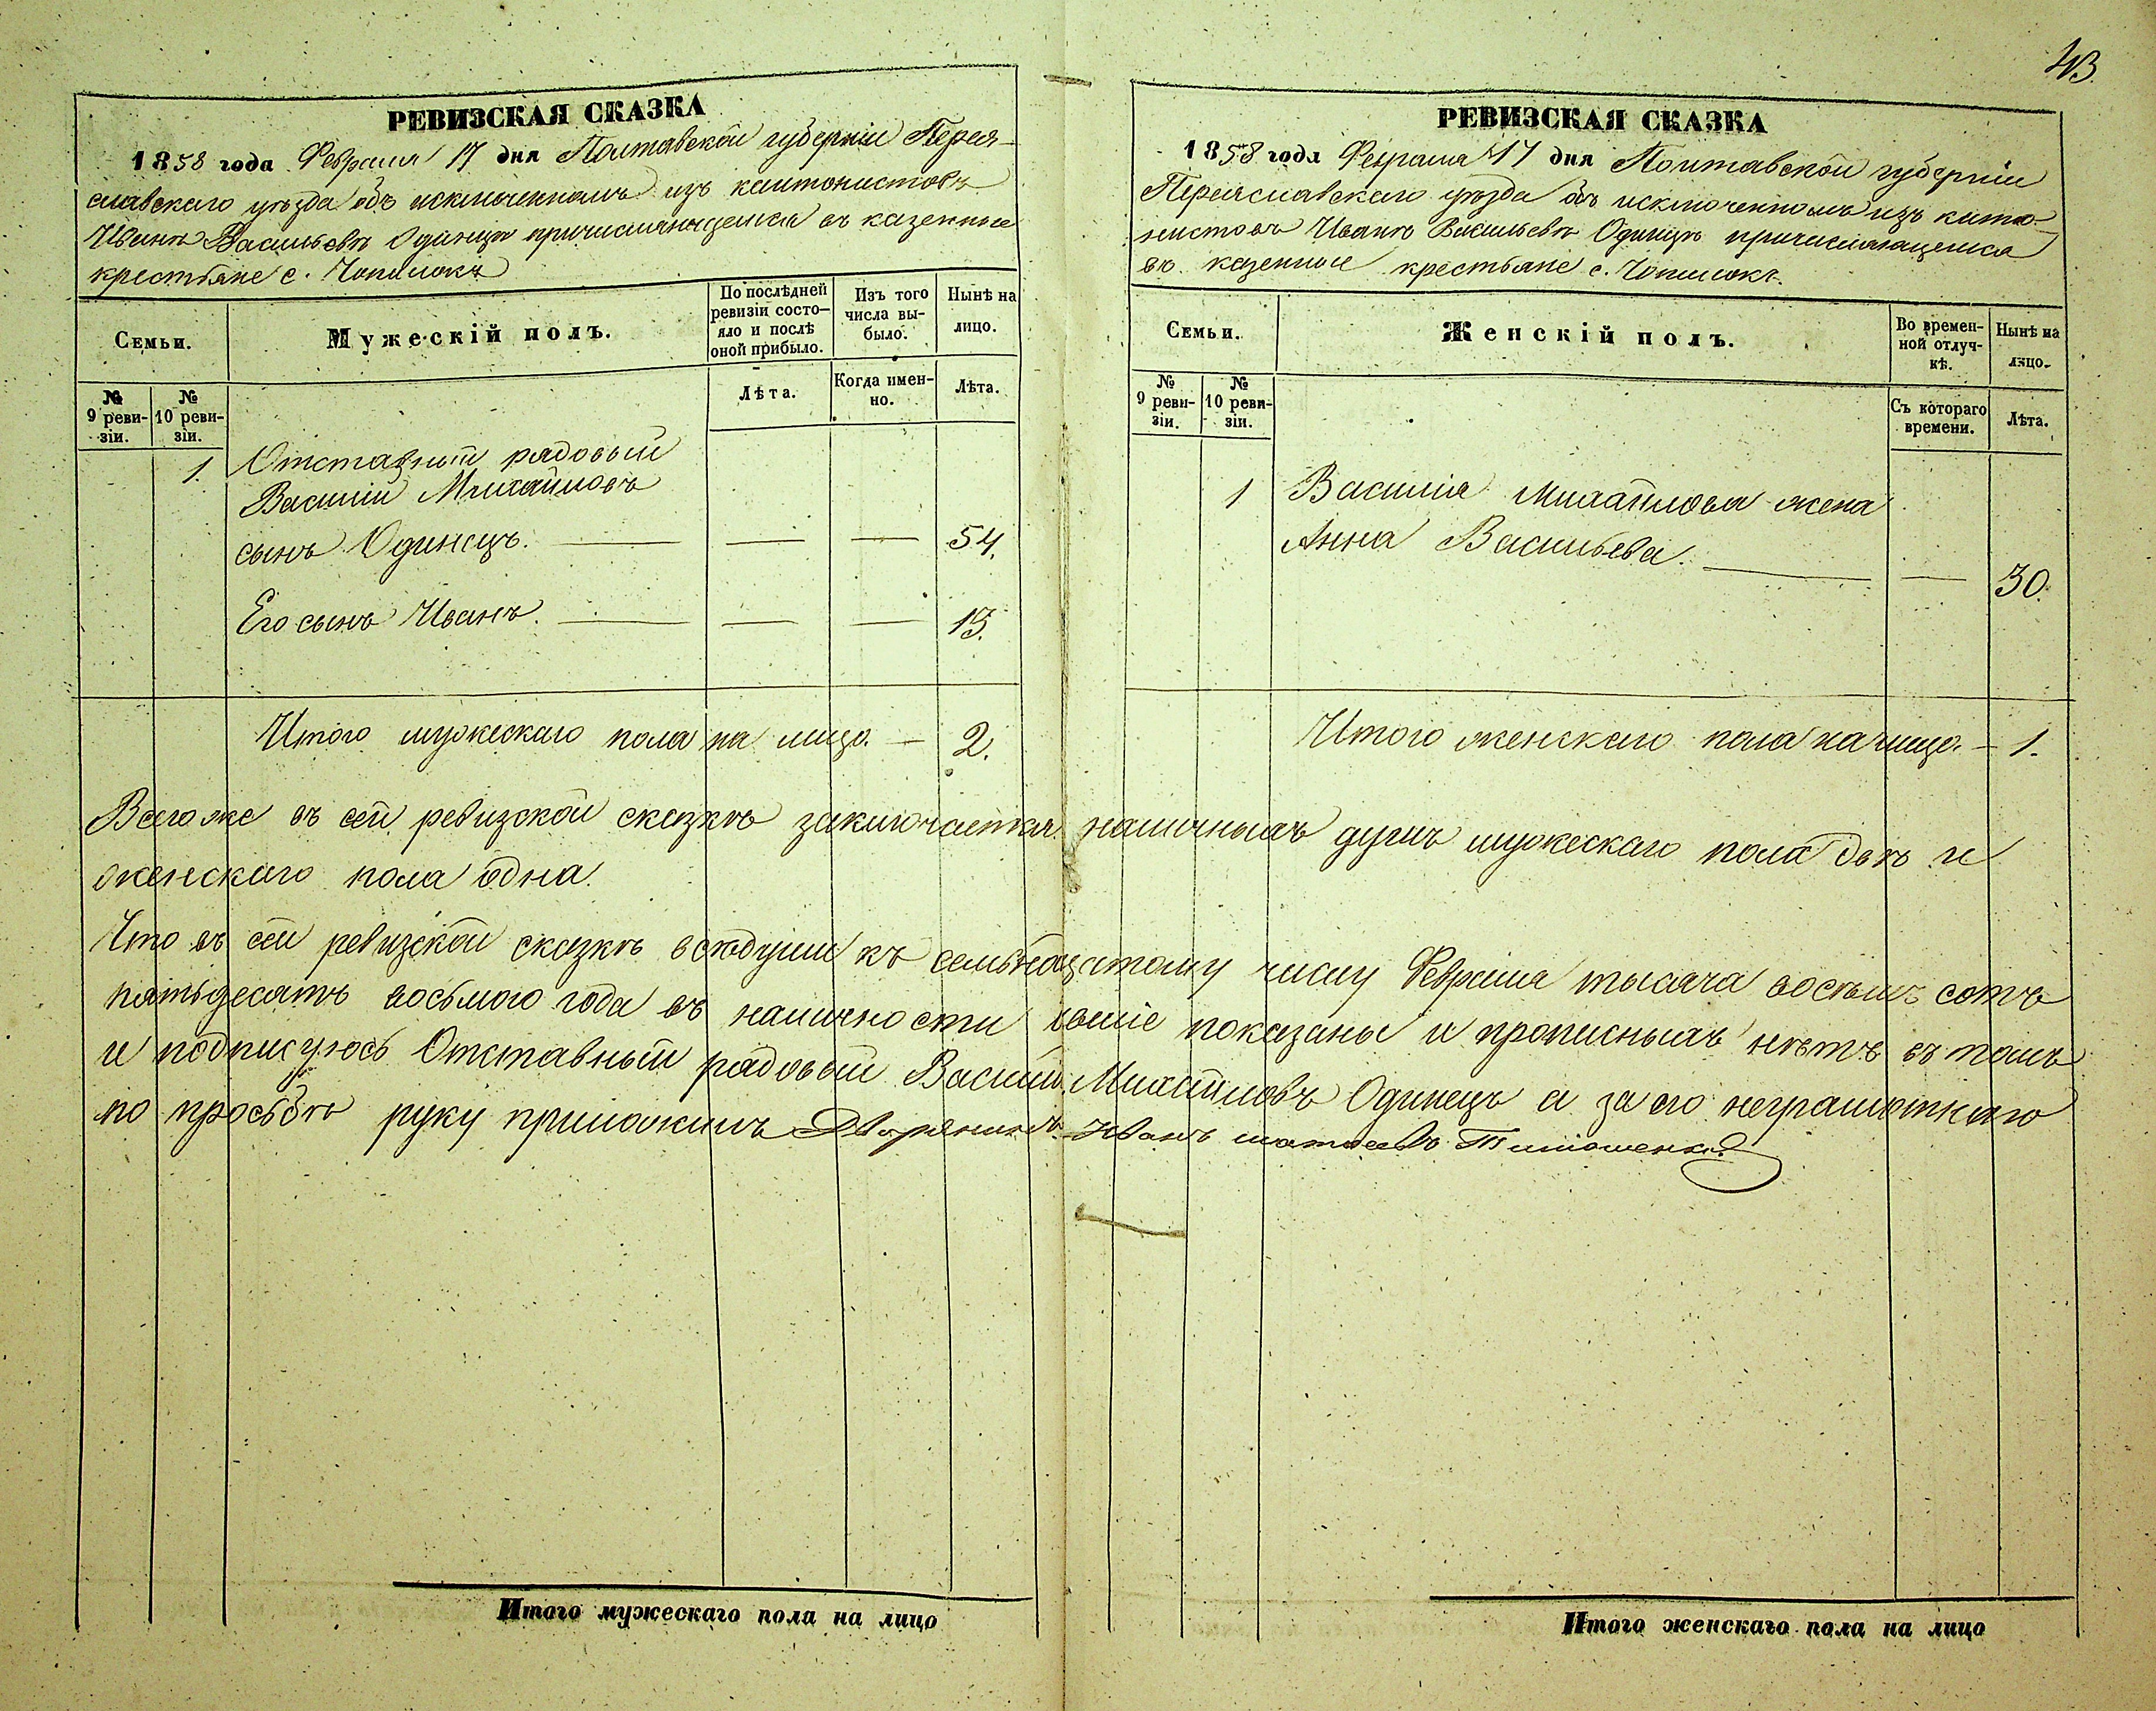 43.
РЕВИЗСКАЯ СКАЗКА
1858 года Февраля 17 дня Полтавской губерніи Перея-
славскаго уѣзда объ исключенномъ изъ кантонистовъ
Иванѣ Васильевѣ Одинцѣ причисляющемся въ казенные
крестьяне с. Чопилокъ
Семьи.
Мужескій полъ.
По послѣдней ревизіи состо-яло и послѣ оной прибыло.
Изъ того числа вы-было.
Нынѣ на лицо.
№ 9 реви-зіи.
№ 10 реви-зіи.
Лѣта.
Когда имен-но.
Лѣта.
1. Отставный рядовый
Василій Михайловъ
сынъ Одинецъ. — — — 54.
Его сынъ Иванъ. — — — 13.
Итого мужескаго пола на лицо. — 2.
РЕВИЗСКАЯ СКАЗКА
1858 года Февраля 17 дня Полтавской губерніи
Переяславскаго уѣзда объ исключенномъ изъ канто-
нистовъ Иванѣ Васильевѣ Одинцѣ причисляющемся
въ казенные крестьяне с. Чопилокъ.
Семьи.
Женскій полъ.
Во времен-ной отлуч-кѣ.
Нынѣ на лицо.
№ 9 реви-зіи.
№ 10 реви-зіи.
Съ котораго времени.
Лѣта.
1 Василія Михайлова жена
Анна Васильева. — — 30.
Итого женскаго пола на лицо. — 1.
Всего же въ сей ревизской сказкѣ заключается наличныхъ душъ мужескаго пола двѣ и
женскаго пола одна.
Что въ сей ревизской сказкѣ всѣ души къ семьнадцатому числу Февраля тысяча восемь сотъ
пятьдесятъ восьмого года въ наличности показаны и прописныхъ нѣтъ въ томъ
и подписуюсь Отставный рядовый Василій Михайловъ Одинецъ а за его неграмотнаго
по просьбѣ руку приложилъ Дворянинъ Иванъ Матвѣевъ Тимошенко
Итого мужескаго пола на лицо
Итого женскаго пола на лицо